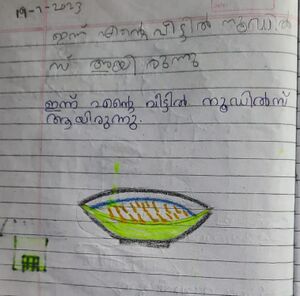 19-7-2023
ഇന്ന് എന്റെ വീട്ടിൽ നൂഡിൽ
സ് ആയി രുന്നു
ഇന്ന് എന്റെ വീട്ടിൽ ന്യൂഡിൽസ്
ആയിരുന്നു.